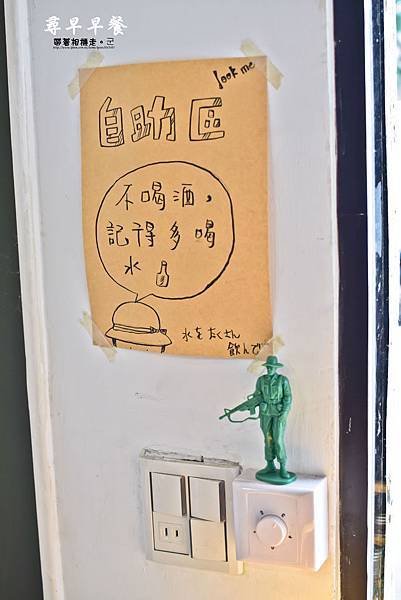 尋早早餐
帶著相機走。
look me
自助區
不喝酒，
記得多喝
水
水をたくさん
飲んで